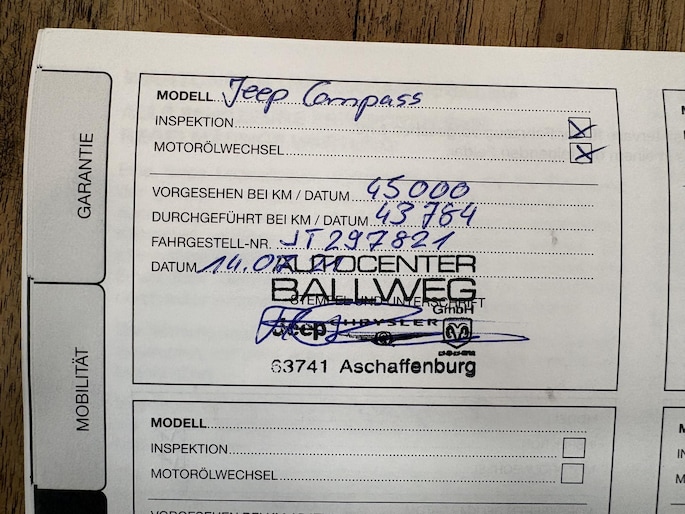 GARANTIE
MOBILITÄT
MODELL Jeep Compass
INSPEKTION
MOTORÖLWECHSEL
VORGESEHEN BEI KM / DATUM 45000
DURCHGEFÜHRT BEI KM / DATUM 43784
FAHRGESTELL-NR. JT297821
DATUM 14.07.21
AUTOCENTER
BALLWEG
STEMPEL UND UNTERSCHRIFT
GmbH
Jeep CHRYSLER
63741 Aschaffenburg
MODELL
INSPEKTION
MOTORÖLWECHSEL